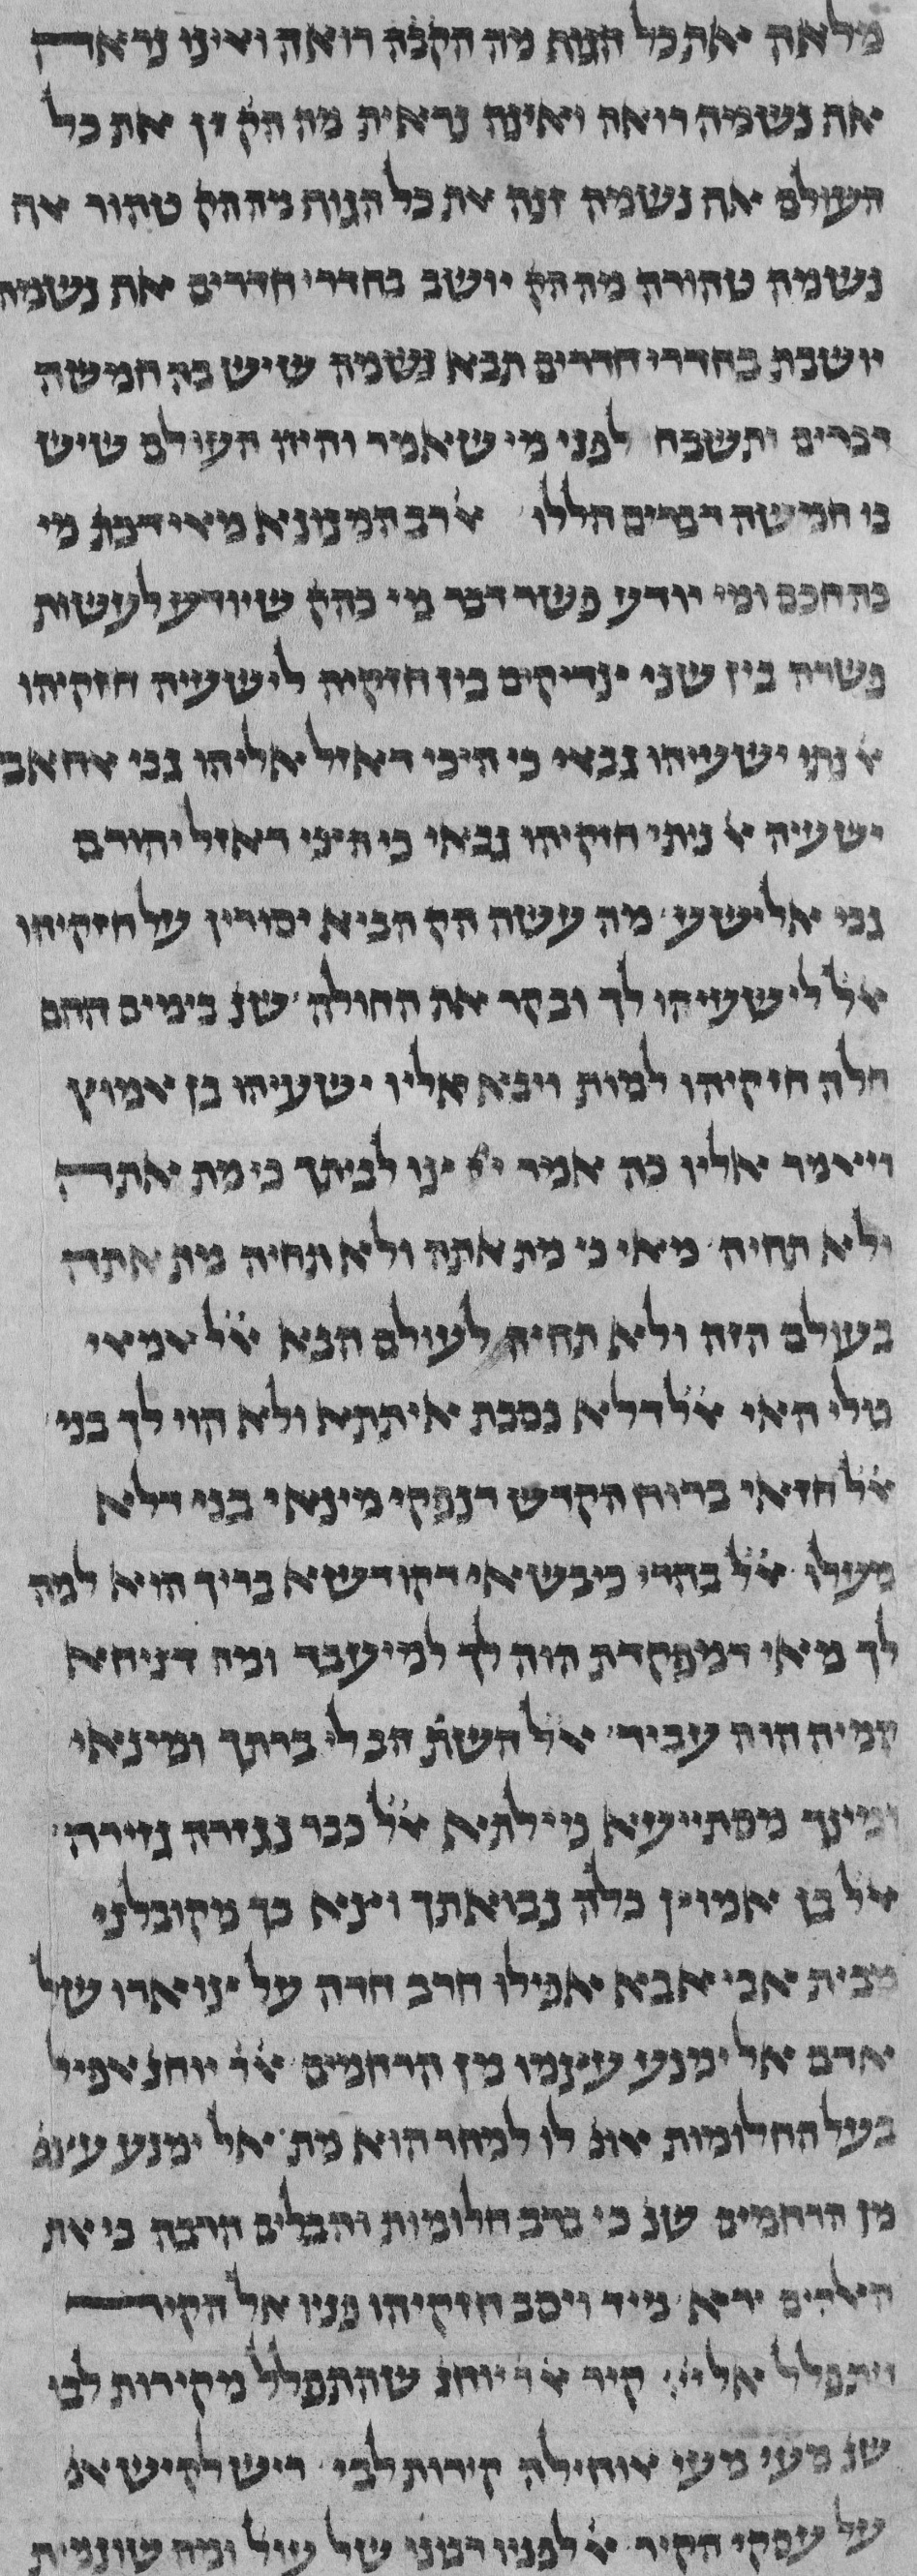 מלאה את כל הגוף מה הקבה רואה ואינו נראה
אף נשמה רואה ואינה נראית מה הק זן את כל
העולם אף נשמה זנה את כל הגוף מה הק טהור אף
נשמה טהורה מה הק יושב בחדרי חדרים אף נשמה
יושבת בחדרי חדרים תבא נשמה שיש בה חמשה
דברים ותשבח לפני מי שאמר והיה העולם שיש
בו חמשה דברים הללו א רב המנונא מאי דכת מי
כהחכם ומי יודע פשר דבר מי כהק שיודע לעשות
פשרה בין שני צדיקים בין חזקיה לישעיה חזקיהו
א ניתי ישעיהו גבאי כי היכי דאזל אליהו גבי אחאב
ישעיה א ניתי חזקיהו גבאי כי היכי דאזל יהורם
גבי אלישע מה עשה הק הביא יסורין על חזקיהו
אל לישעיהו לך ובקר את החולה שנ בימים ההם
חלה חזקיהו למות ויבא אליו ישעיהו בן אמוץ
ויאמר אליו כה אמר יי צו לביתך כי מת אתה
ולא תחיה מאי כי מת אתה ולא תחיה מת אתה
בעולם הזה ולא תחיה לעולם הבא אל אמאי
כולי האי אל דלא נסבת איתתא ולא הוו לך בני
אל חזאי ברוח הקדש דנפקי מינאי בני דלא
מעלו אל בהדי כיבשאי דקודשא בריך הוא למה
לך מאי דמפקדת הוה לך למיעבד ומה דניחא
קמיה הוה עביד אל השת הב לי ברתך ומינאי
ומינך מסתייעא מילתא אל כבר נגזרה גזירה
אל בן אמוץ כלה נבואתך וצא כך מקובלני
מבית אבי אבא אפילו חרב חדה על צוארו של
אדם אל ימנע עצמו מן הרחמים א ר יוחנ אפיל
בעל החלומות אומ לו למחר הוא מת אל ימנע עצמ
מן הרחמים שנ כי ברב חלומות והבלים הרבה כי את
האלהים ירא מיד ויסב חזקיהו פניו אל הקיר
ויתפלל אל יי קיר א ר יוחנ שהתפלל מקירות לבו
שנ מעי מעי אוחילה קירות לבי ריש לקיש א
על עסקי הקיר א לפניו רבונו של עול ומה שונמית